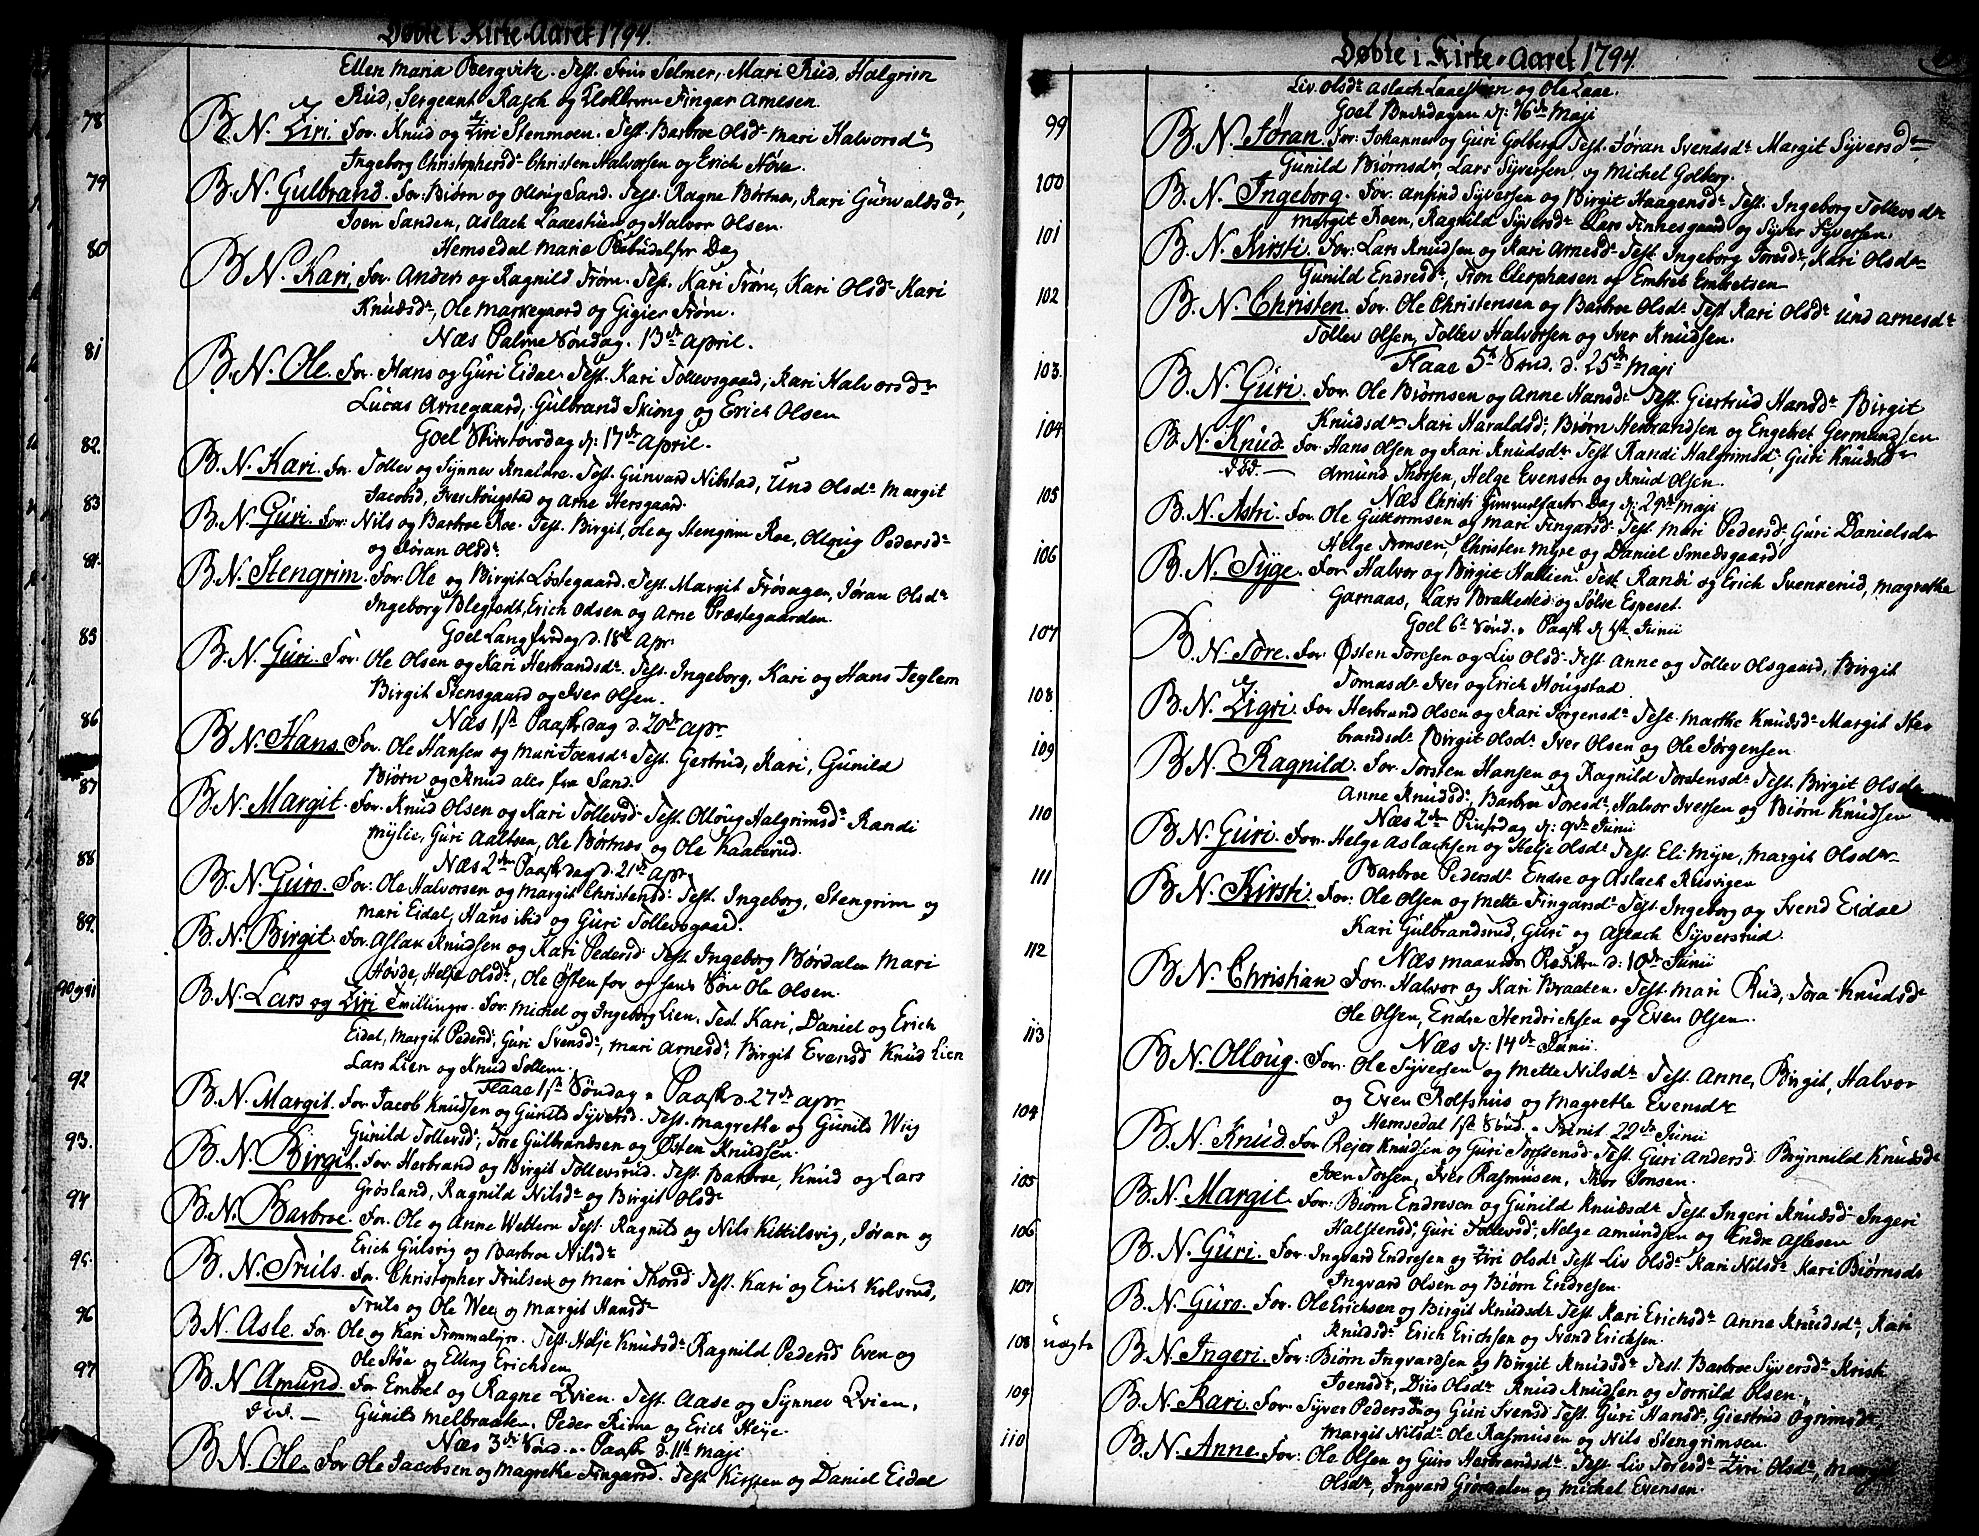 Døbte i Kirke-Aaret 1794.
Ellen Maria Bergvitz. Test. Frue Selmer, Mari Rud, Halgrim
Rud, Sergeant Rasch og Fingar Arnesen.
78 B. N. Ziri For. Knud og Ziri Stenmoen. Test. Barbroe Olsdr Mari Halvorsdr
Ingeborg Christophersdr Christen Halvorsen og Erich
79 B. N. Gulbrand. For. Biørn og Olloug Sand. Test. Ragne Børtnes, Kari Gunvaldsdr,
Joen Sanden, Aslach Laaestuen og Halvor Olsen.
Hemsedal Marie Dag
80 B N. Kari, For Anders og Ragnild Trøim. Test. Kari Trøim, Kari Olsdr Kari
Knudsdr, Ole Markegaard og Gigier Trøim.
Næs Palme Søndag. 13de April.
81 B. N. Ole. For. Hans og Guri Eidal. Test. Kari Tollevsgaard, Kari Halvorsdr
Lucas Arnegaard, Gulbrand Skiong og Erich Olsen
Goel Skirtorsdag d: 17de April.
82. B. N. Kari. For. Tollev og Synnev Test. Gunvard Nibstad, Und Olsdr Margit
Jacobsd, Iver Hougstad og Arne Hersgaard.
83 B. N. Guri. For: Nils og Barbroe Roe. Test. Birgit, Ole og Stengrim Roe, Olloug Pedersdr
og Jøran Olsdr.
84. B. N. Stengrim. For. Ole og Birgit Løstegaard. Test. Margit Frøsagen, Jøran Olsdr
Ingeborg Erich Odsen og Arne Præstegaarden.
Goel Langfredag d. 18de Apr.
85 B. N. Guri. For. Ole Olsen og Kari Herbrandsdr. Test. Ingeborg, Kari og Hans Teglem
Birgit Stensgaard og Iver Olsen.
Næs 1ste Paaske dag d. 20de Apr.
86 B N. Hans For. Ole Hansen og Mari Joensdr Test. Gertrud, Kari, Gunild
Biørn og Knud alle fra Sand.
87 B. N. Margit. For. Knud Olsen og Kari Tollevsd. Test. Olloug Halgrimsdr Randi
Mylie, Guri Aaltsen, Ole Børtnes og Ole Kaaterud.
Næs 2den Paaske dag d. 21de Apr
88 B. N. Guro. For: Ole Halvorsen og Margit Christensd: Test. Ingeborg, Stengrim og
Mari Eidal, Hans ibid og Guri Tollevsgaard.
89. B. N. Birgit. For. Aslak Knudsen og Kari Pedersd. Test. Ingeborg Børdalen Mari
Hovde, Helje Olsdr, Ole Østenfor og hens Søn Ole Olsen.
90 og 91 B. N. Lars og Ziri Tvillinger. For. Michel og Ingeborg Lien. Test. Kari, Daniel og Erich
Eidal, Margit Pedersd, Guri Svensdr, Mari Arnesdr, Birgit Evensd Knud Lien
Lars Lien og Knud
Flaae 1ste Søndag e Paaske d. 27de Apr
92 B. N. Margit. For Jacob Knudsen og Gunild Syversd. Test. Magrethe og Gunild Wiig
Gunild Tollevsdr, Tore Gulbrandsen og Østen Knudsen.
93. B. N. Birgit. For Herbrand og Birgit Tollevsrud. Test. Barbroe, Knud og Lars
Grøsland, Ragnild Nilsdr og Birgit Olsdr
94 B. N. Barbroe. For. Ole og Anne Wettern Test. Ragnild og Nils Kittilsvig, Jøran og
Erich Gulsvig og Barbroe Nilsdr
95. B. N. Truls. For. Christopher Trulsen og Mari Thorsd Test. Kari og Erich Kolsrud,
Truls og Ole Wee og Margit Hansdr
96 B N. Asle. For. Ole og Kari Trommald. Test. Helje Knudsdr Ragnild Pedersd Even og
Ole Støe og Elling Erichsen
97 B. N Amund. For Embret og Ragne Qvien. Test. Aase og Synnev Qvien,
død. Gunild Melbraaten, Peder Rime og Erich Heje.
Næs 3de Sønd. e. Paaske d. 11te Maji
B. N. Ole. For. Ole Jacobsen og Magrethe Fingarsd. Test. Kirsten og Daniel Eidal
Døbte i Kirke-Aaret 1794.
Liv Olsdr Aslach Laaestuen og Ole Laae.
Goel Bededagen d: 16de Maji
99 B. N. Jøran For: Johannes og Guri Golberg. Test. Jøran Svendsdr Margit Syversdr
Gunild Biørnsdr, Lars Syversen og Michel Golberg.
100 B. N. Ingeborg. For. Anfind Syversen og Birgit Haagensdr Test. Ingeborg Tollevsdr
Margit Roen, Ragnild Syversdr Lars Finnesgaard og Syver Syversen.
101 B. N. Kirsti. For: Lars Knudsen og Kari Arnesd. Test. Ingeborg Toresdr, Kari Olsdr
Gunild Endresdr, Tron Cleophasen og Embret Embretsen
102 B. N. Christen For. Ole Christensen og Barbroe Olsdr Test Kari Olsdr Und Arnesdr
Tollev Olsen, Tollev Halvorsen og Iver Knudsen.
Flaae 5te Sønd. d. 25de Maji
103. B. N. Guri For Ole Biørnsen og Anne Hansdr Test. Giertrud Hansdr Birgit
Knudsdr Kari Haraldsdr, Biørn Herbrandsen og Engebret Germundsen
104 B. N. Knud For Hans Olsen og Kari Knudsdr Test Randi Halgrimsd, Guri Knudsdr
død. Amund Thorsen, Helge Evensen og Knud Olsen.
Næs Christi Himmelfarts Dag d: 29de Maji
105 B. N. Astri For. Ole Guttormsen og Mari Fingarsdr Test Mari Pedersdr, Guri Danielsdr
Helge Tronsen, Christen Myre og Daniel Smedsgaard
106 B. N. Tyge. For. Halvor og Birgit Hallien. Test Randi og Erich Svenserud, Magrethe
Garnaas, Lars Bratterud og Sølve Espeset.
Goel 6te Sønd. e Paaske d 1ste Junii
107 B. N. Tore. For. Østen Toresen og Liv Olsd. Test. Anne og Tollev Olsgaard, Birgit
Tomasdr Iver og Erich Hougstad
108 B. N. Zigri. For Herbrand Olsen og Kari Jørgensdr Test. Marthe Knudsdr Margit Her
brandsdr Birgit Olsdr Iver Olsen og Ole Jørgensen
109 B. N. Ragnild. For Torsten Hansen og Ragnild Torstensdr Test. Birgit Olsdr
Anne Knudsdr, Barbroe Toresdr, Halvor Iversen og Biørn Knudsen
Næs 2den Pintsedag d: 9de Junii
110 B. N. Guri. For. Helge Aslachsen og Helje Olsdr Test. Eli Myre, Margit Olsdr
Barbroe Pedersdr Endre og Aslach Rusvigen
111 B. N. Kirsti. For. Ole Olsen og Mette Fingarsdr Test. Ingeborg og Svend Eidal
Kari Gulbrandsrud, Guri og Aslach Syversrud.
112 Næs d. 10de Junii
B. N. Christian For. Halvor og Kari Braaten. Test. Mari Rud, Tora Knudsdr
Ole Olsen, Endre Hendrichsen og Even Olsen.
113 Næs d: 14de Junii.
B. N. Olloug. For. Ole Syversen og Mette Nilsdr Test. Anne, Birgit, Halvor
og Even Rolfshus og Magrethe Evensdr
104 Hemsedal 1ste Sønd. e Trinit. 22de Junii
B. N. Knud. For Rejer Knudsen og Guri Torstensd Test. Guri Andersd. Brynnild Knudsdr
Joen Torsen, Iver Rasmusen, Thor Jonsen.
105 B. N. Margit For. Biørn Endresen og Gunild Knudsdr Test. Ingeri Knudsd. Ingeri
Halstensd, Guri Tollevsdr, Helge Amundsen og Endre Aslesen
106 B. N. Guri. For. Ingvard Endresen og Ziri Olsdr Test Liv Olsdr Kari Nilsdr Kari Biørnsdr
Ingvard Olsen og Biørn Endresen.
107 B. N. Guro. For. Ole Erichsen og Birgit Knudsdr Test Kari Erichsdr Anne Knudsdr, Kari
Knudsdr Erich Erichsen og Svend Erichsen.
108 uægte B. N. Ingeri. For: Biørn Ingvardsen og Birgit Knudsdr Test. Barbroe Syversdr
Joensdr, Olsdr Knud Knudsen og Torkild Olsen.
109 B. N. Kari. For. Syver Pedersen og Guri Svensd Test. Guri Hansdr, Giertrud Ögrimsdr
Margit Nilsdr Ole Rasmusen og Nils Stengrimsen.
110 B. N. Anne. For: Ole Olsen og Guro Herbrandsdr. Test. Liv Toresdr Ziri Olsdr, Margit
Olsdr, Ingvard Grøndalen og Michel Evensen.